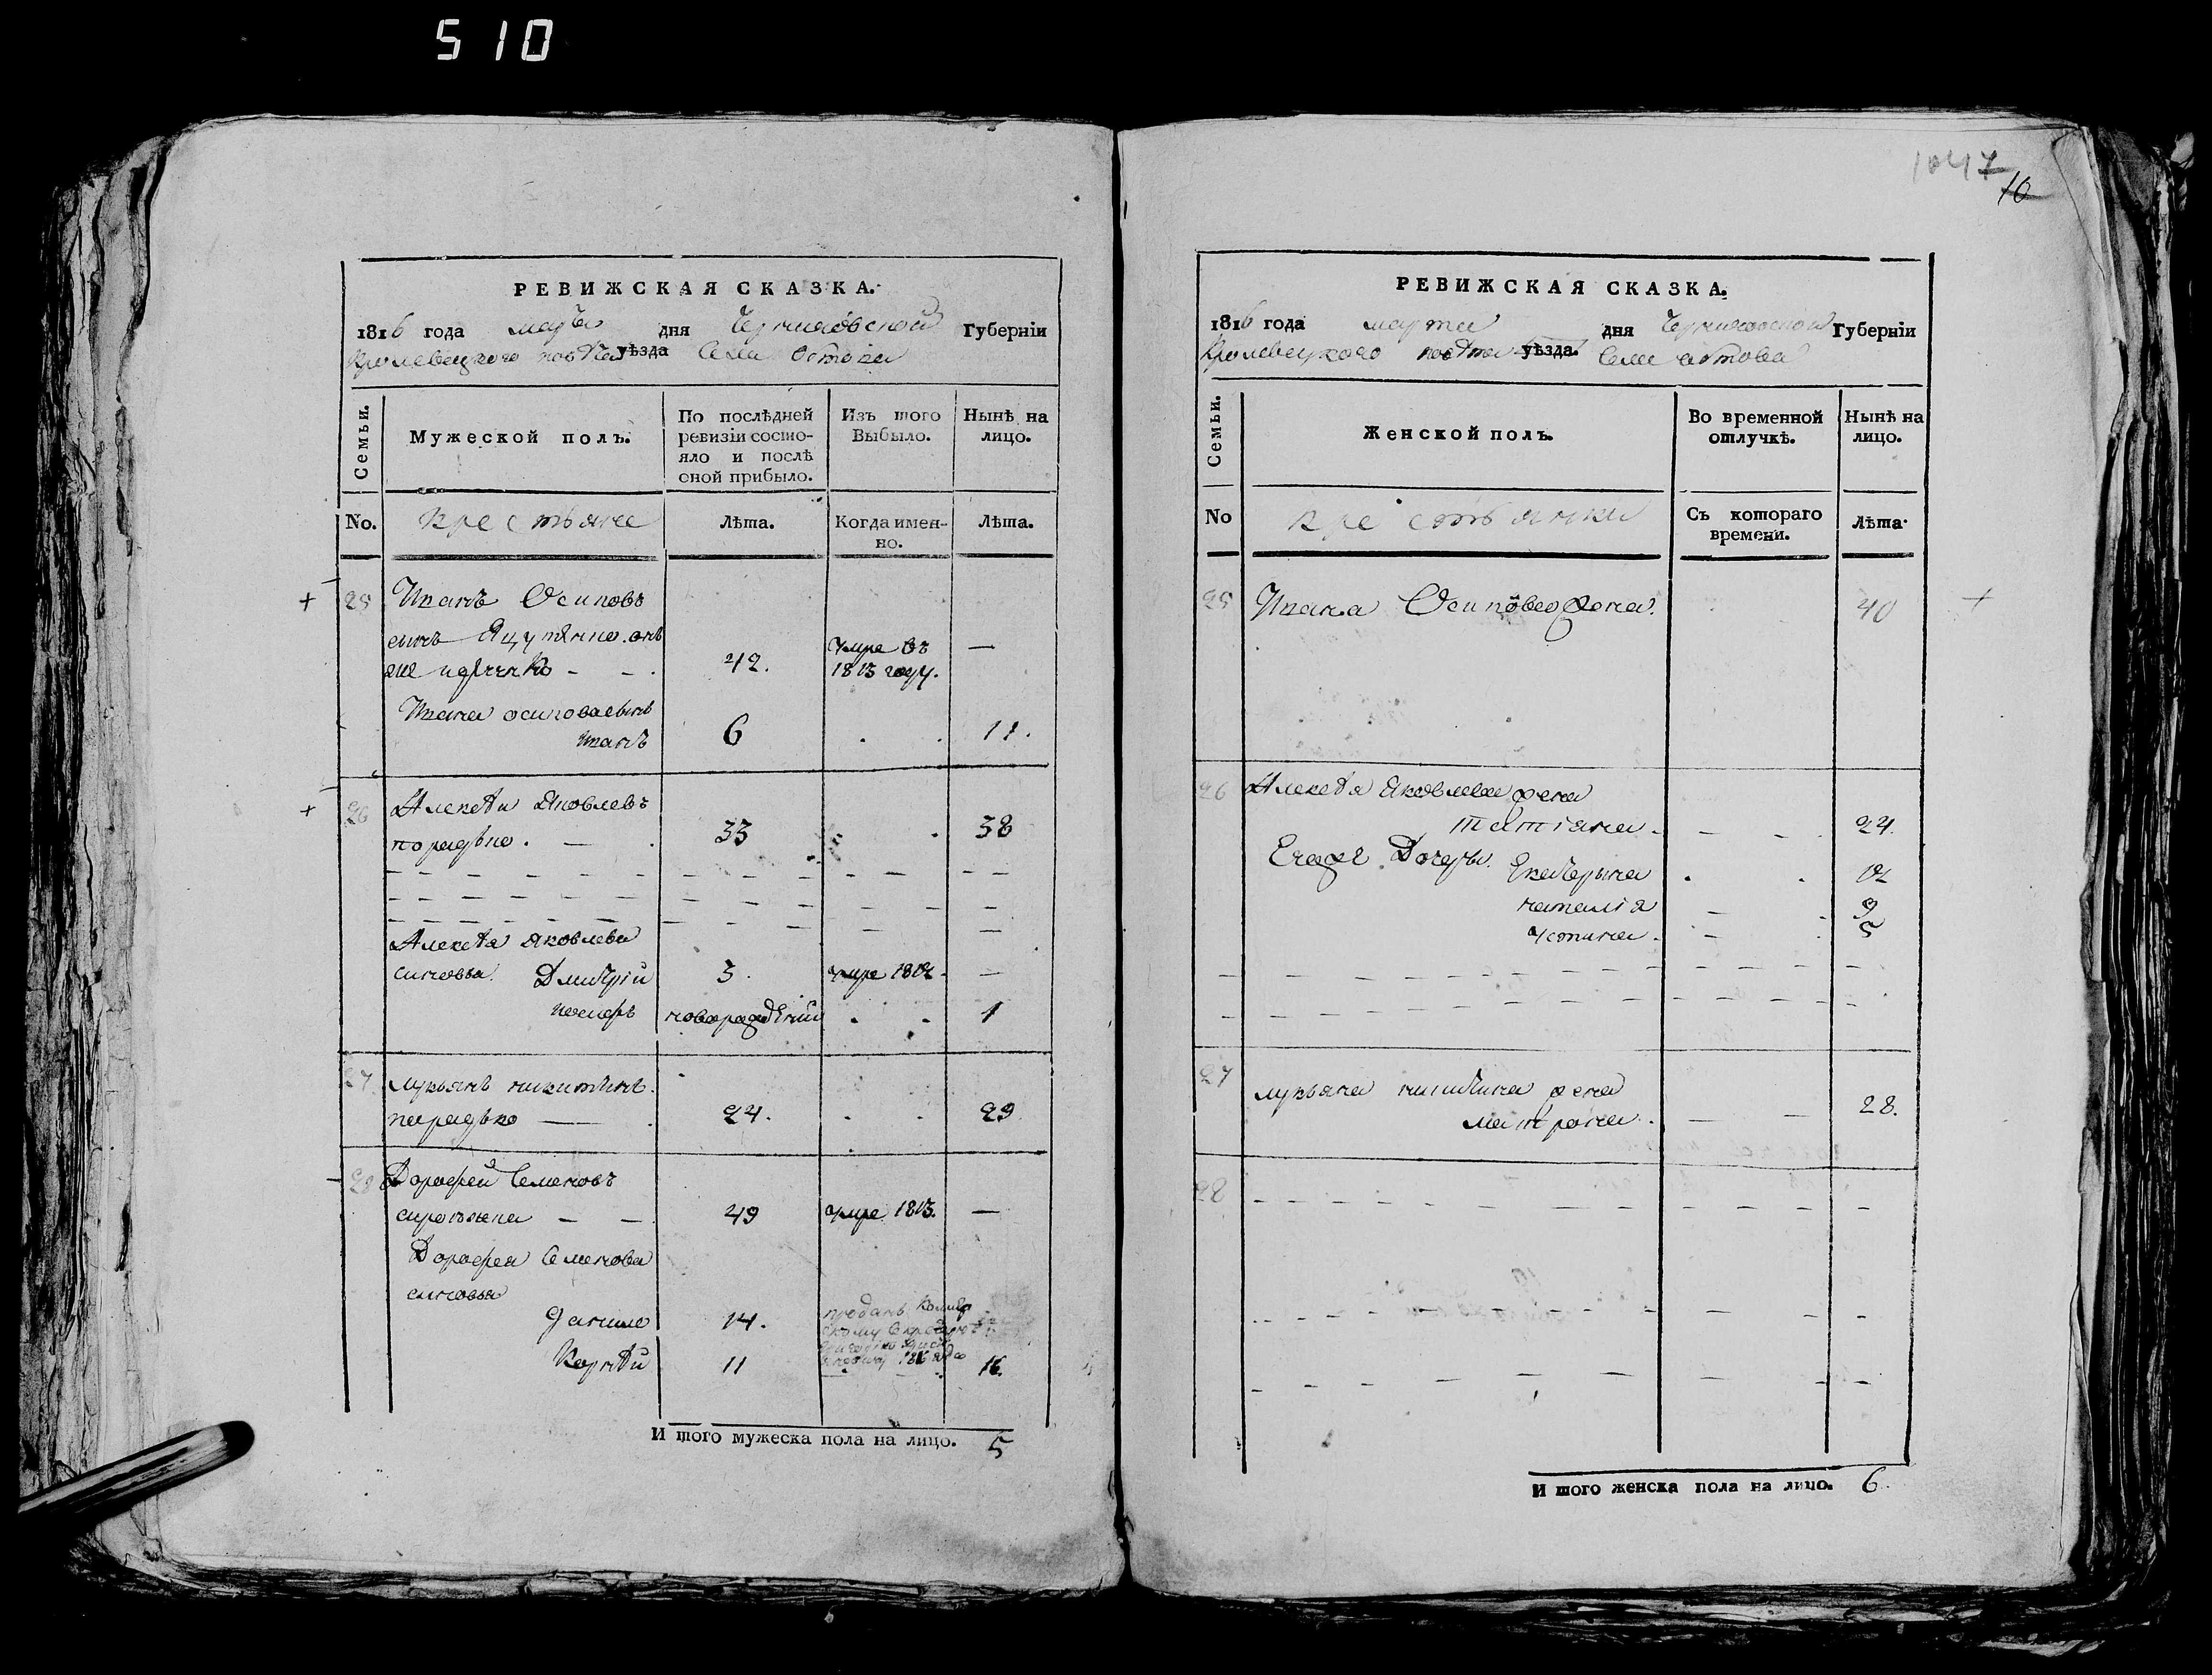 510
1047
10
РЕВИЖСКАЯ СКАЗКА.
1816 года марта дня Черниговской Губерніи
Кролевецкого повѣта уѣзда Села
Семьи.
Мужеской полъ.
По послѣдней ревизіи состояло и послѣ оной прибыло.
Изъ того Выбыло.
Нынѣ на лицо.
No.
крестьяне
Лѣта.
Когда именно.
Лѣта.
+ 25 Иванъ Осиповъ
сынъ онъ
же 42. умре въ 1813 году. —
Ивана осипова сынъ
иванъ 6 . . 11.
+ 26 Алексѣй Яковлевъ
33 . . 38
Алексѣя яковлева
синовья. Дмитрій 3. умре 1812 —
новорожденній . . 1
27 лукьянъ никитинъ
24. . . 29
28 Дорофей Семеновъ
— — 49 умре 1813. —
Дорофея Семенова
синовья
данило 14. проданъ
Корнѣй 11 16.
И того мужеска пола на лицо. 5
РЕВИЖСКАЯ СКАЗКА.
1816 года марта дня Черниговской Губерніи
Кролевецкого повѣта уѣзда. Села
Семьи.
Женской полъ.
Во временной отлучкѣ.
Нынѣ на лицо.
No
крестьянки
Съ котораго времени.
Лѣта.
25 Ивана Осипова жена. 40 +
26 Алексѣя Яковлева жена
татіяна. — — 24.
Егоже Дочеры. Екатерына . . 12
наталія — . 9
устина. — . 5
27 лукьяна никитина жена
матрона. — — 28.
28
И того женска пола на лицо. 6